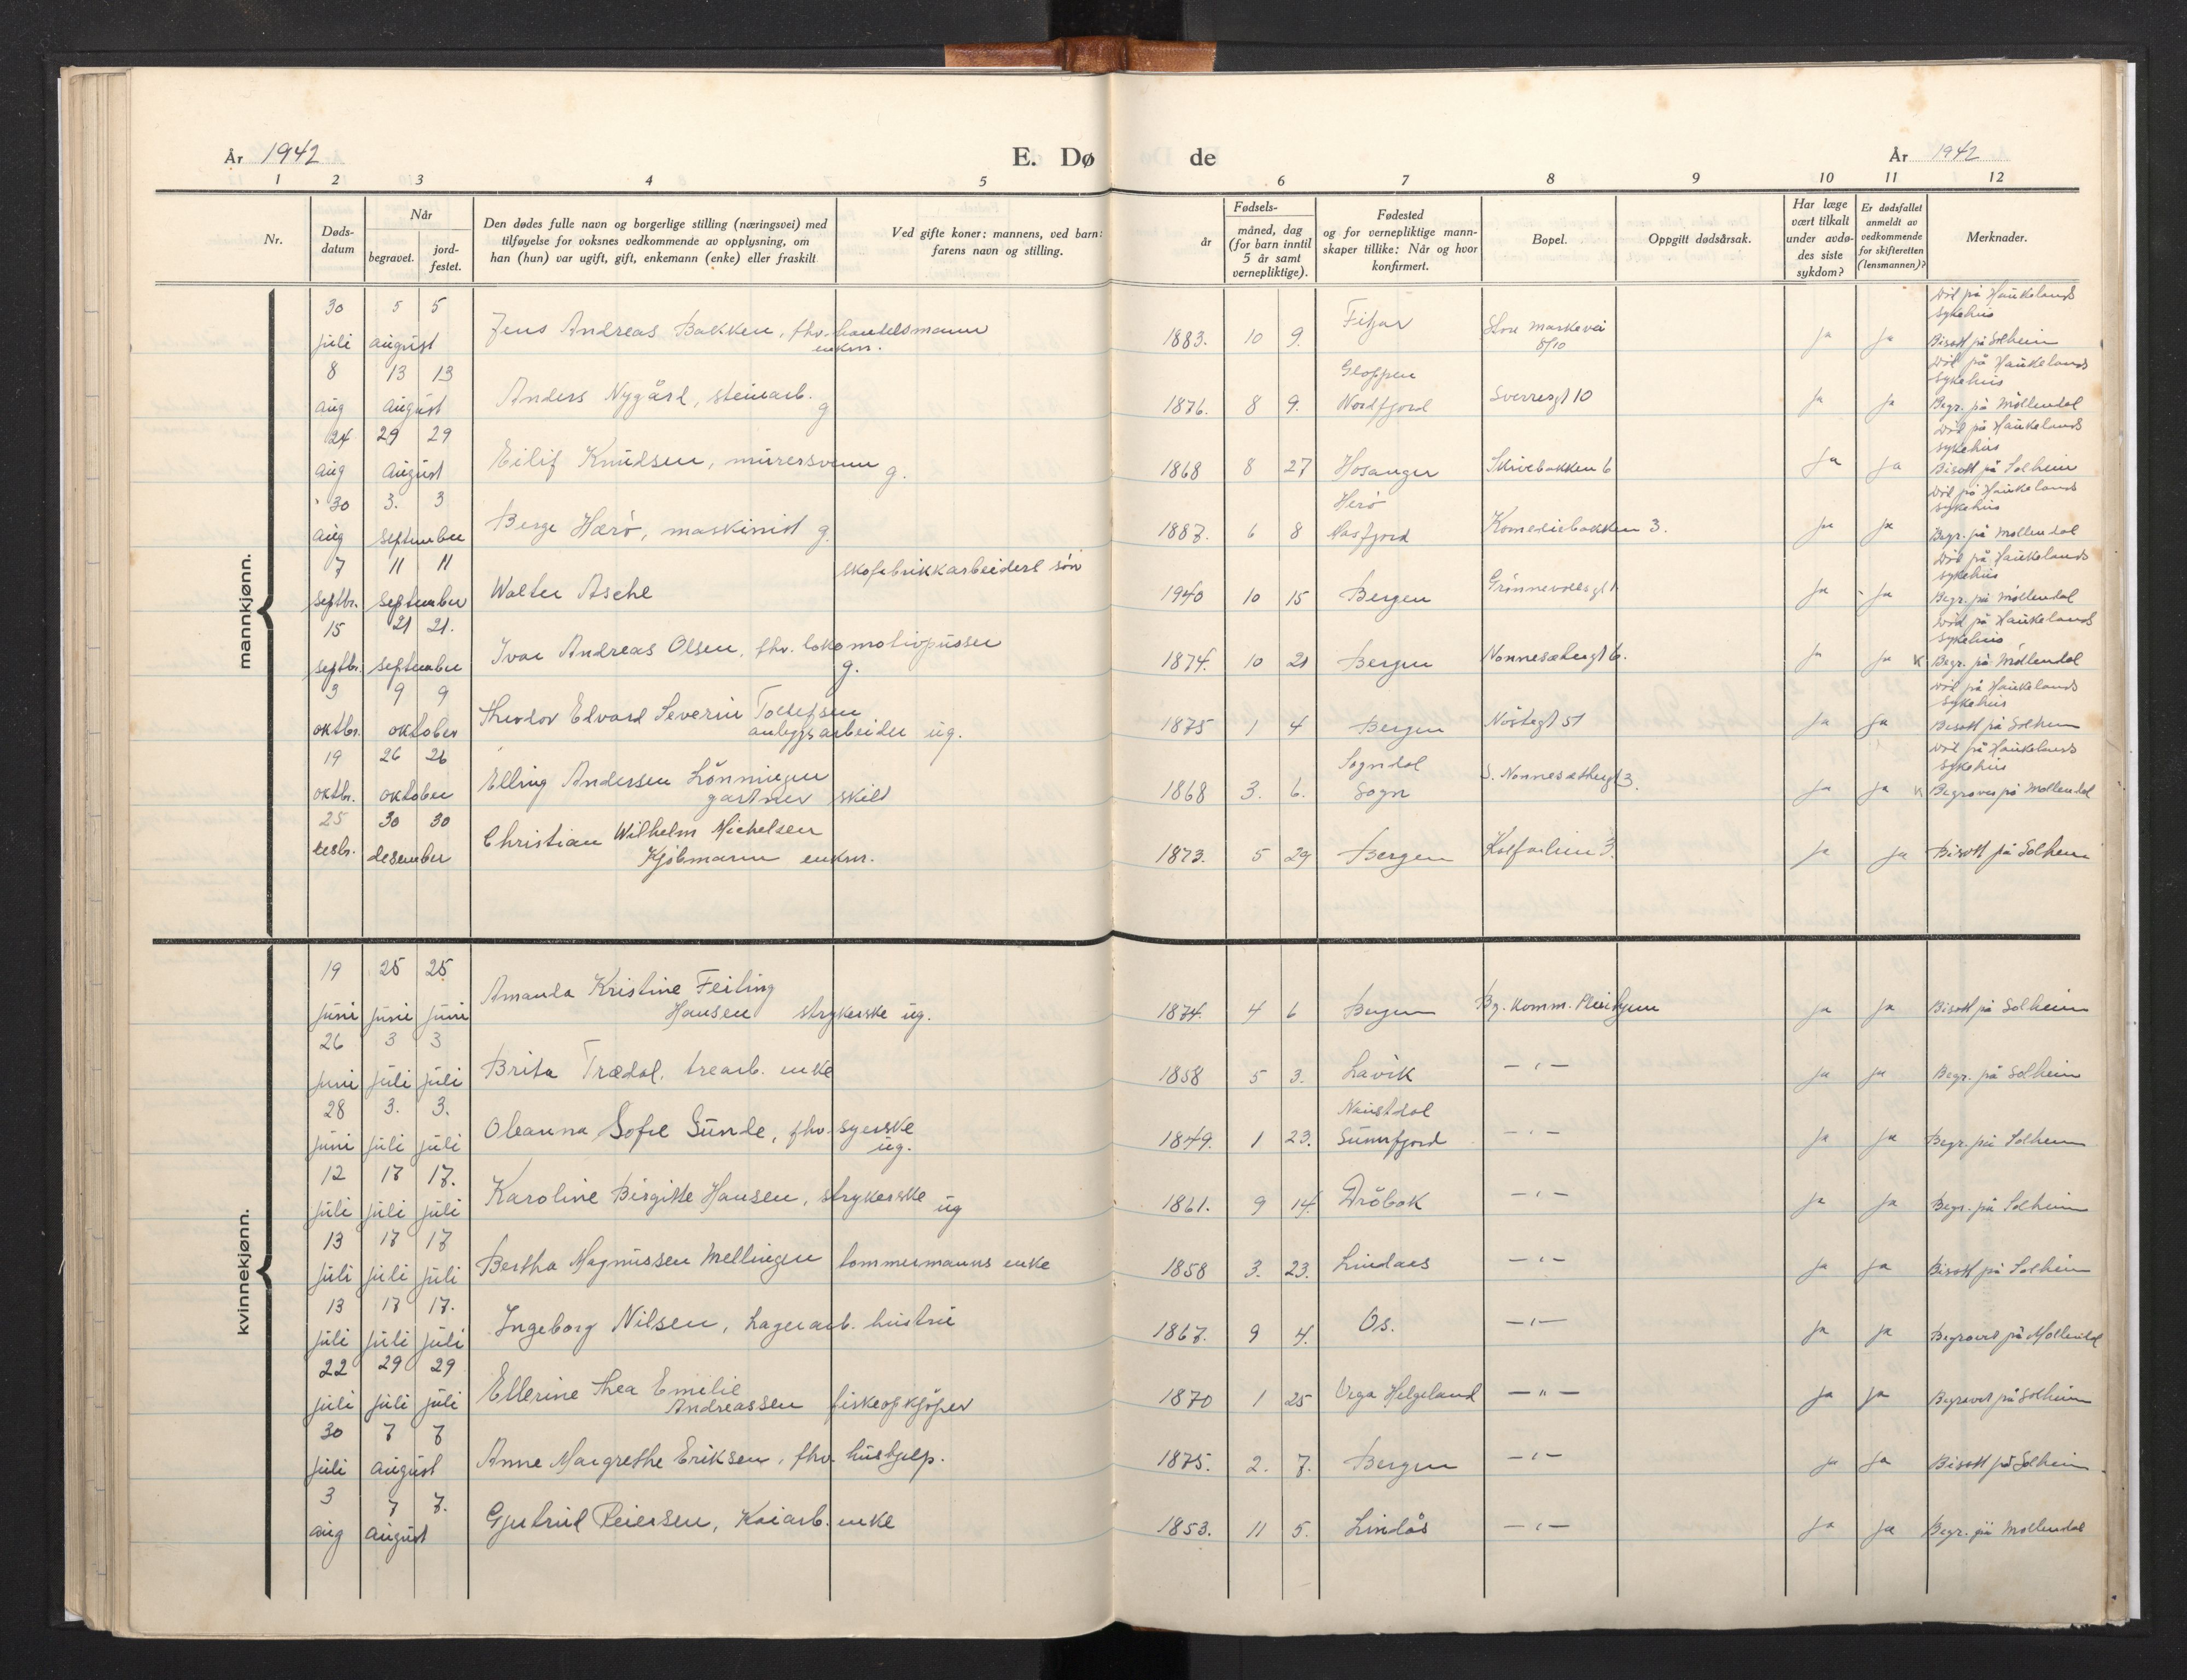 År 1942
E. Dø de
År 1942
1 2 3 4 5 6 7 8 9 10 11 12
Nr.
Døds-
datum
Når
begravet.
jord-
festet.
Den dødes fulle navn og borgerlige stilling (næringsvei) med
tilføyelse for voksnes vedkommende av opplysning, om
han (hun) var ugift, gift, enkemann (enke) eller fraskilt
Ved gifte koner: mannens, ved barn:
farens navn og stilling.
Fødsels-
år
måned, dag
(for barn inntil
5 år samt
vernepliktige).
Fødested
og for vernepliktige mann-
skaper tillike: Når og hvor
konfirmert.
Bopel.
Oppgitt dødsårsak.
Har læge
vært tilkalt
under avdø-
des siste
sykdom?
Er dødsfallet
anmeldt av
vedkommende
for skifteretten
(lensmannen)?
Merknader.
mannkjønn.
30 5 5 Fitjar Död på Haukelands
sykehus
juli august Jens Andreas Bakken, fhv. handelsmann 1883. 10 9. Store Markevei ja ja Bisatt på Solheim
enkm. 8/10
8 13 13 Gloppen Död på Haukelands
sykehus
aug august Anders Nygård, steinarb. g 1876. 8 9. Nordfjord Sverresgt 10 ja ja Begr. på Möllendal
24 29 29 Död på Haukelands
sykehus
aug august Eilif Knudsen, murersvenn g. 1868 8 27 Hosanger Skivebakken 6 ja ja Bisatt på Solheim
30 3. 3 Herö Död på Haukelands
sykehus
aug september Berge Herö, maskinist g. 1887. 6 8 Masfjord Komediebakken 3. ja ja Begr. på Möllendal
7 11 11 skofabrikkarbeiders sön Död på Haukelands
sykehus
septbr. september Walter Asche 1940 10 15 Bergen Grönnevollsgt 1 ja ja Begr. på Möllendal
15 21 21. Död på Haukelands
sykehus
septbr. september Ivar Andreas Olsen, fhv. lokomotivpusser g. 1874. 10 21 Bergen Nonnesætergt 6. ja ja Begr. på Möllendal
3 9 9 Död på Haukelands
sykehus
oktbr. oktober Theodor Edvard Severin Tollefsen 1875 1 4 Bergen Nöstegt 51 ja ja Bisatt på Solheim
anleggsarbeider ug.
19 26 26 Sogndal Död på Haukelands
sykehus
oktbr. oktober Elling Andersen Lönningen 1868 3. 6. Sogn S. Nonnesætergt 3. ja ja Begraves på Möllendal
gartner skilt
25 30 30
desbr. desember Christian Wilhelm Michelsen 1873. 5 29 Bergen Kalfarlien 3. ja ja Bisatt på Solheim
Kjöbmann enkm.
kvinnekjønn.
19 25 25.
juni juni juni Amanda Kristine Feiling 1874. 4 6 Bergen Bg. Komm. Pleiehjem ja ja Bisatt på Solheim
Hansen strykerske ug.
26 3 3
juni juli juli Brita Trædal, trearb. enke 1858 5 3. Lavik — „ — ja ja Begr. på Solheim
28 3. 3. Naustdal
juni juli juli Oleanna Sofie Sunde, fhv. syerske 1849. 1 23. Sunnfjord — „ — ja ja Begr. på Solheim
ug.
12 17 17.
juli juli juli Karoline Birgitte Hansen, strykerske ug 1861. 9 14. Dröbak — „ — ja ja Begr. på Solheim
13 17 17
juli juli juli Bertha Magnussen Mellingen tommermanns enke 1858 3. 23. Lindaas — „ — ja ja Bisatt på Solheim
13 17 17.
juli juli juli Ingeborg Nilsen, Lagerarb. hustru 1867. 9 4. Os. — „ — ja ja Begravet på Möllendal
22 29 29
juli juli juli Ellerine Thea Emilie 1870 1 25 Vega Helgeland — „ — ja ja Begravet på Solheim
Andreassen fiskeopkjöper
30 7 7
juli august Anne Margrethe Eriksen, fhv. hushjelp. 1875. 2. 7. Bergen — „ — ja ja Bisatt på Solheim.
3 7 7.
aug august Gjertrud Reiersen, Kaiarb. enke 1853. 11 5. Lindås — „ — ja ja Begr. på Möllendal